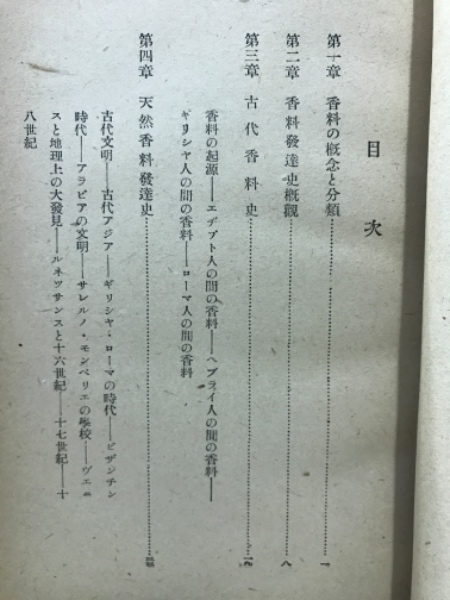 目次
第一章 香料の概念と分類………一
第二章 香料發達史概觀………八
第三章 古代香料史………一九
香料の起源——エヂプト人の間の香料——ヘブライ人の間の香料——
ギリシヤ人の間の香料——ローマ人の間の香料
第四章 天然香料發達史………
古代文明——古代アジア——ギリシヤ・ローマの時代——ビザンチン
時代——アラビアの文明——サレルノ・モンペリエの學校——ヴエニ
スと地理上の大發見——ルネツサンスと十六世紀——十七世紀——十
八世紀